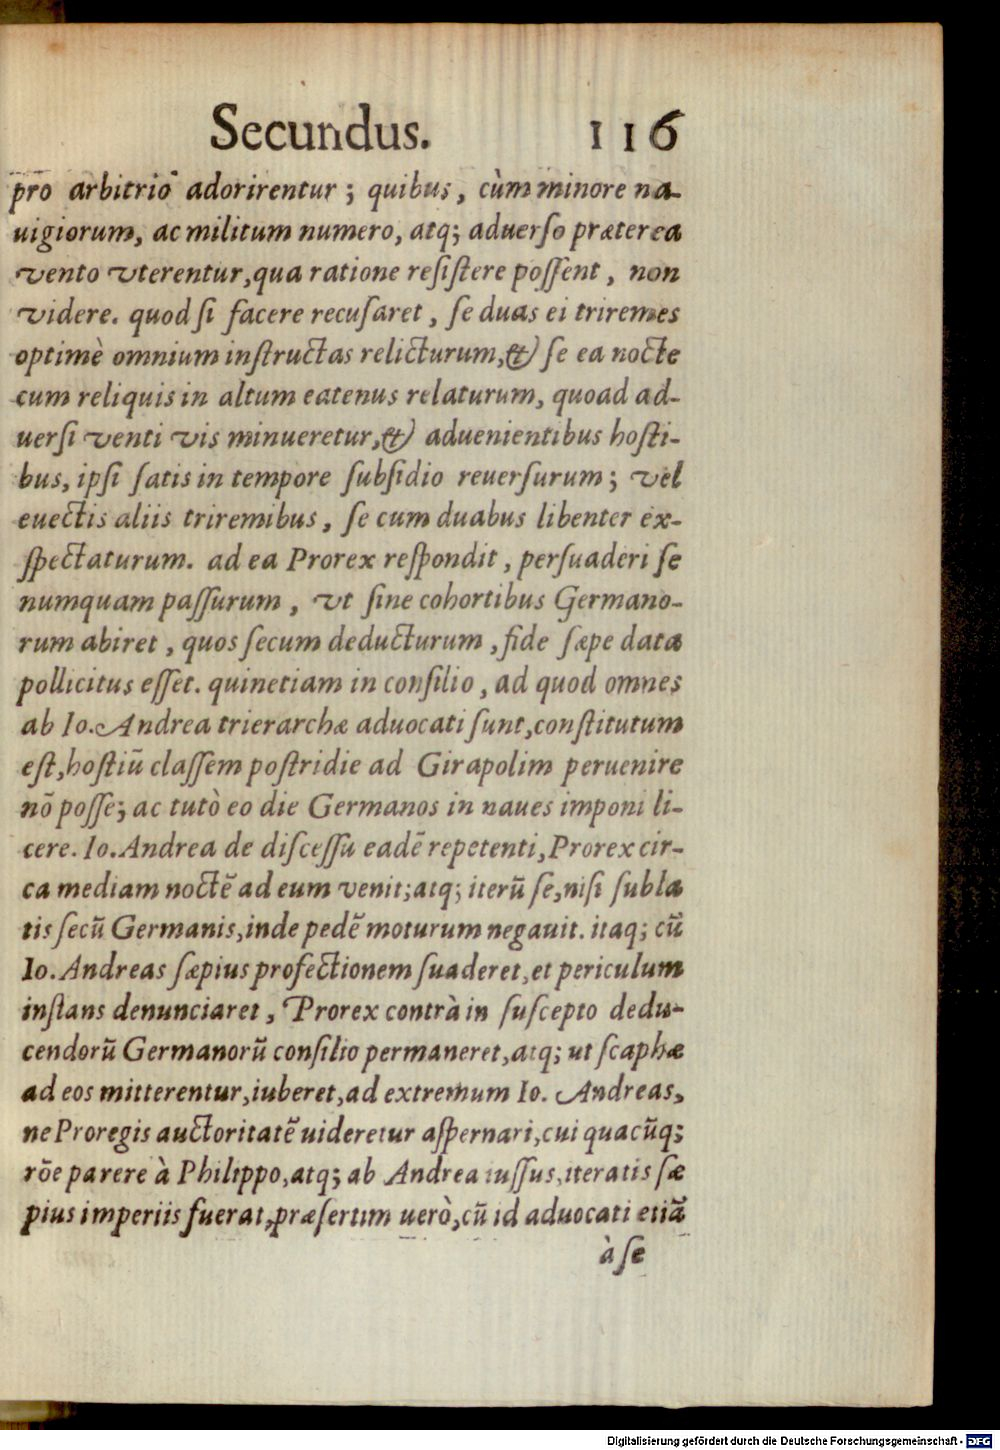 Secundus. 116
pro arbitrio adorirentur; quibus, cùm minore na-
uigiorum, ac militum numero, atq; aduerſo præterea
vento vterentur, qua ratione reſiſtere poſſent, non
videre. quod ſi facere recuſaret, ſe duas ei triremes
optimè omnium inſtructas relicturum, & ſe ea nocte
cum reliquis in altum eatenus relaturum, quoad ad-
uerſi venti vis minueretur, & aduenientibus hoſti-
bus, ipſi ſatis in tempore ſubſidio reuerſurum; vel
euectis aliis triremibus, ſe cum duabus libenter ex-
ſpectaturum. ad ea Prorex reſpondit, perſuaderi ſe
numquam paſſurum, vt ſine cohortibus Germano-
rum abiret, quos ſecum deducturum, fide ſæpe data
pollicitus eſſet. quinetiam in conſilio, ad quod omnes
ab Io. Andrea trierarchæ aduocati ſunt, conſtitutum
eſt, hoſtiũ claſſem poſtridie ad Girapolim peruenire
nõ poſſe; ac tutò eo die Germanos in naues imponi li-
cere. Io. Andrea de diſceſſu eadẽ repetenti, Prorex cir-
ca mediam noctẽ ad eum venit; atq; iterũ ſe, niſi ſubla
tis ſecũ Germanis, inde pedẽ moturum negauit. itaq; cũ
Io. Andreas ſæpius profectionem ſuaderet, et periculum
inſtans denunciaret, Prorex contrà in ſuſcepto dedu-
cendorũ Germanorũ conſilio permaneret, atq; ut ſcaphæ
ad eos mitterentur, iuberet, ad extremum Io. Andreas,
ne Proregis auctoritatẽ uideretur aſpernari, cui quacũq;
rõe parere à Philippo, atq; ab Andrea iuſſus, iteratis ſæ
pius imperiis fuerat, præſertim uerò, cũ id aduocati etiã
à ſe
Digitalisierung gefördert durch die Deutsche Forschungsgemeinschaft - DFG